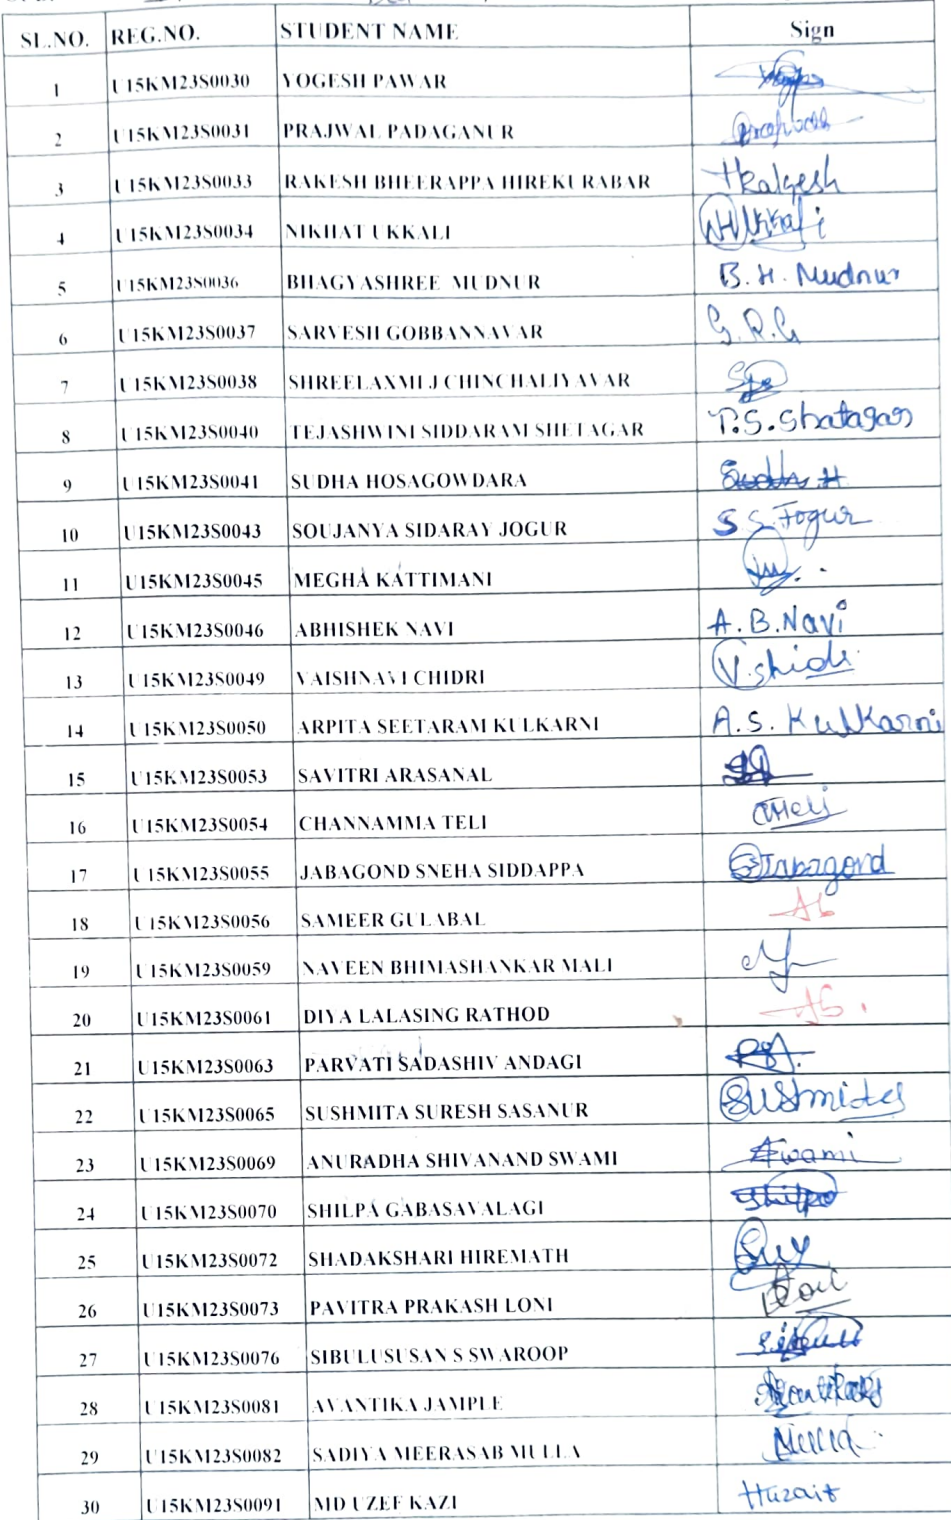 SL.NO. REG.NO. STUDENT NAME Sign
1 U15KM23S0030 YOGESH PAWAR
2 U15KM23S0031 PRAJWAL PADAGANUR
3 U15KM23S0033 RAKESH BHEERAPPA HIREKURABAR
4 U15KM23S0034 NIKHAT UKKALI
5 U15KM23S0036 BHAGYASHREE MUDNUR B.H. Mudnur
6 U15KM23S0037 SARVESH GOBBANNAVAR S.R.G
7 U15KM23S0038 SHREELAXMI J CHINCHALIYAVAR
8 U15KM23S0040 TEJASHWINI SIDDARAM SHETAGAR T.S.Shatagar
9 U15KM23S0041 SUDHA HOSAGOWDARA Sudha.H
10 U15KM23S0043 SOUJANYA SIDARAY JOGUR S S.Jogur
11 U15KM23S0045 MEGHA KATTIMANI
12 U15KM23S0046 ABHISHEK NAVI A.B.Navi
13 U15KM23S0049 VAISHNAVI CHIDRI
14 U15KM23S0050 ARPITA SEETARAM KULKARNI A.S. Kulkarni
15 U15KM23S0053 SAVITRI ARASANAL
16 U15KM23S0054 CHANNAMMA TELI
17 U15KM23S0055 JABAGOND SNEHA SIDDAPPA Jabagond
18 U15KM23S0056 SAMEER GULABAL Ab
19 U15KM23S0059 NAVEEN BHIMASHANKAR MALI
20 U15KM23S0061 DIYA LALASING RATHOD Ab.
21 U15KM23S0063 PARVATI SADASHIV ANDAGI PSA.
22 U15KM23S0065 SUSHMITA SURESH SASANUR Sushmita
23 U15KM23S0069 ANURADHA SHIVANAND SWAMI Aswami
24 U15KM23S0070 SHILPA GABASAVALAGI Shilpa
25 U15KM23S0072 SHADAKSHARI HIREMATH
26 U15KM23S0073 PAVITRA PRAKASH LONI
27 U15KM23S0076 SIBULUSUSAN S SWAROOP
28 U15KM23S0081 AVANTIKA JAMPLE
29 U15KM23S0082 SADIYA MEERASAB MULLA
30 U15KM23S0091 MD UZEF KAZI Huzaif